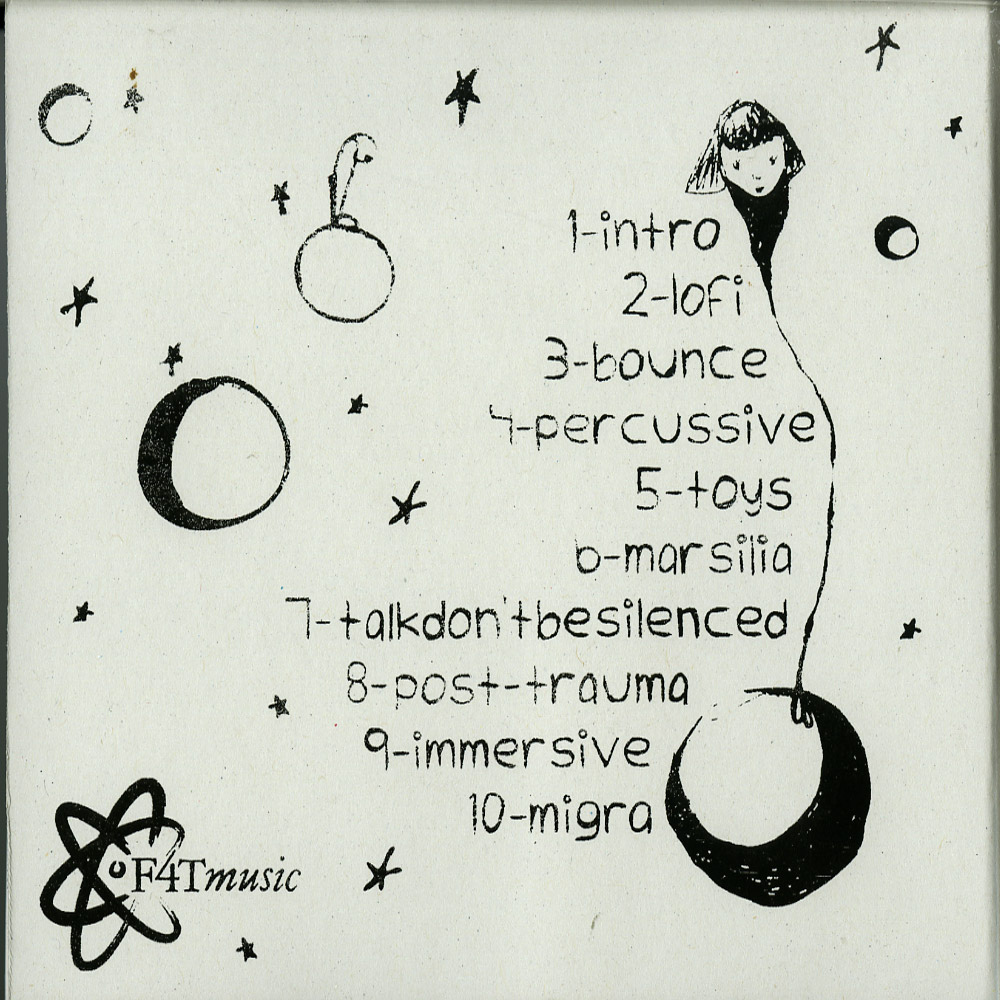 1-intro
2-lofi
3-bounce
4-percussive
5-toys
6-marsilia
7-talkdon'tbesilenced
8-post-trauma
9-immersive
10-migra
F4Tmusic